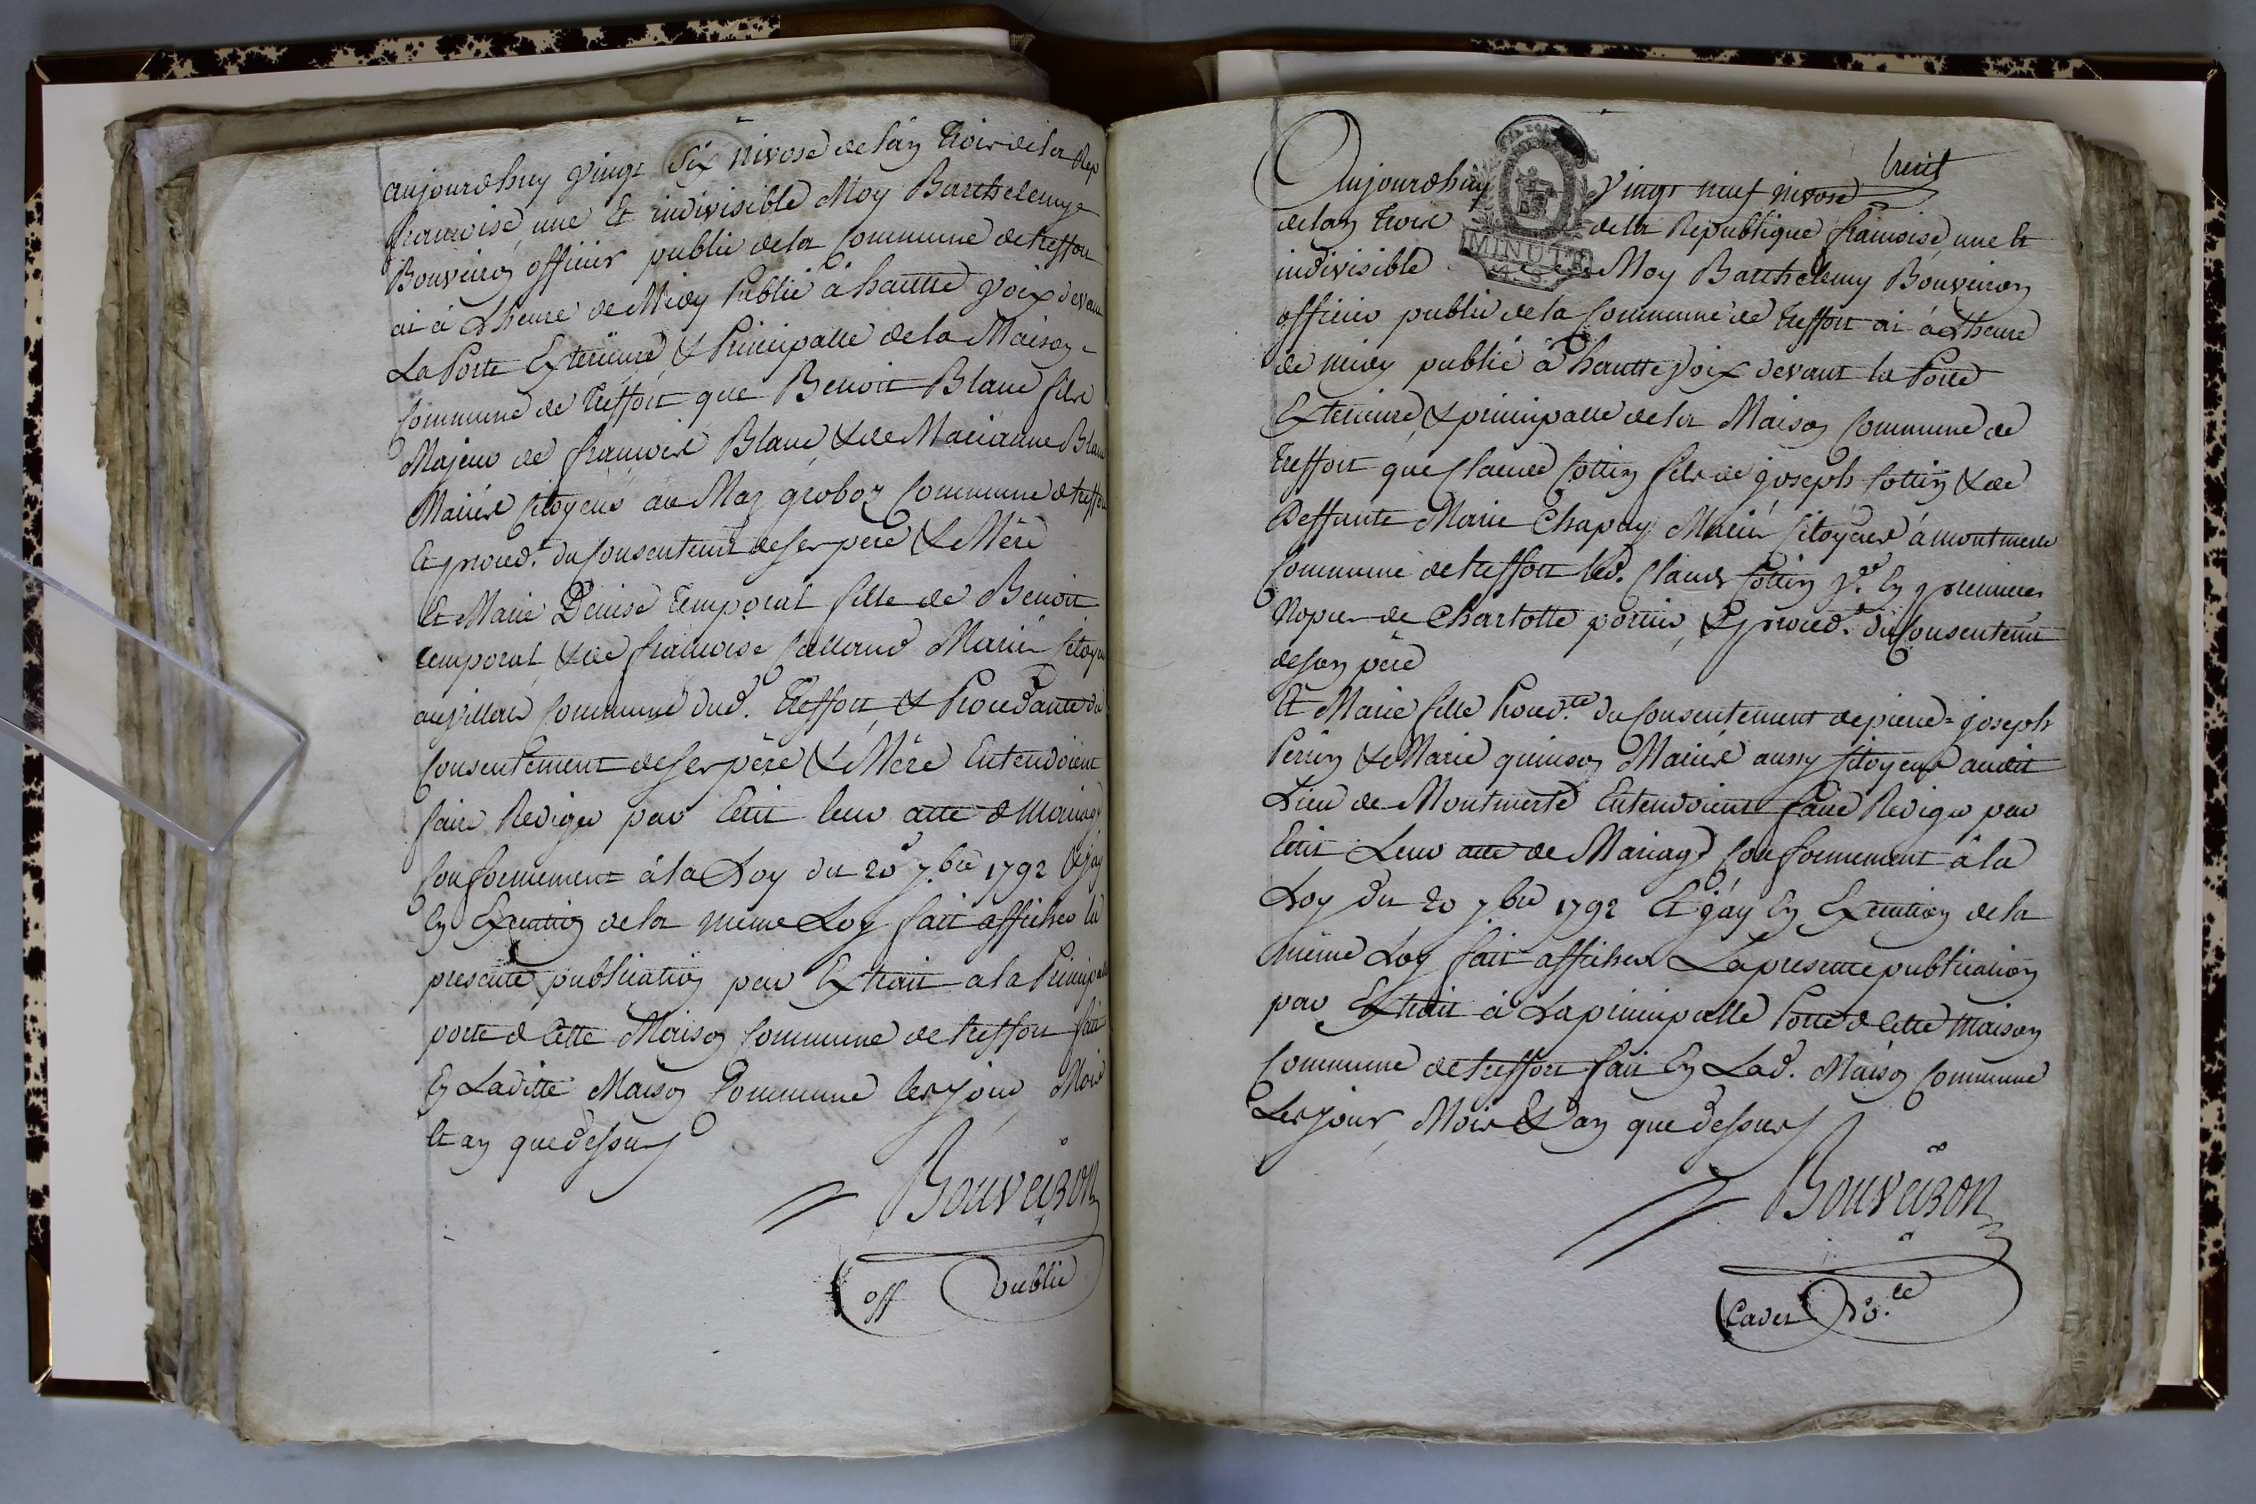 aujourdhuy vingt six nivose de lan trois de la Rep
françoise une Et indivisible Moy Barthelemy
Bouveiron officier public de la Commune de treffort
ai à Lheure de Midy Publié à hautte voix devant
La Porte Exterieure & Principalle de la Maison
Commune de treffort que Benoit Blanc fils
Majeur de françois Blanc & de Marianne Blanc
Mariés Citoyens au Maz groboz Commune d treffort
Et proced.t du Consentemt de ses pere & Mére
Et Marie Denise temporal fille de Benoit
temporal & de françoise Calland Mariés Citoyens
au villard Commune dud. treffort & Procédante du
Consentement de ses père & Mére Entendoient
faire Rediger par Ecrit leur acte d Mariage
Conformement à la Loy du 20 7.bre 1792 & jay
En Exécution de la meme Loy fait afficher la
presente publication par Extrait a la Principalle
porte d Cette Maison Commune de treffort fait
En Laditte Maison Commune les jour Mois
Et an que dessus
Bouveiron
off public
MINUTE
Aujourdhuy vingt neuf nivose
de lan trois de la Republique françoise une Et
indivisible Moy Barthelemy Bouveiron
officier public de la Commune de treffort ai à Lheure
de midy publié à hautte voix devant la Porte
Exterieure & principalle de la Maison Commune de
treffort que Claude Cottin fils de joseph Cottin & de
deffunte Marie Chapuy Mariés Citoyens à montmerle
Commune de treffort led. Claude Cottin v.f En premieres
Nopces de Charlotte & proced. du Consentemt
de son père
Et Marie fille Proced.te du Consentement de pierre=joseph
Perrin & Marie quinson Mariés aussy Citoyens audit
Lieu de Montmerle Entendoient faire Rediger par
Ecrit Leur acte de Mariage Conformement à la
Loy du 20 7.bre 1792 Et jay En Exécution de la
même Loy fait afficher La presente publication
par Extrait à La principalle Porte d Cette Maison
Commune de treffort fait En Lad. Maison Commune
Les jour Mois & an que dessus
Bouveiron